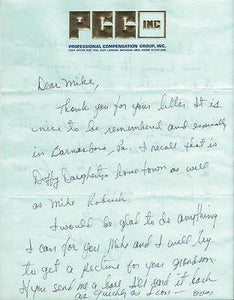 PCG INC
PROFESSIONAL COMPENSATION GROUP, INC.
Dear Mike,
Thank you for your letter. It is
nice to be remembered and especially
in Barnesboro, Pa. I recall that is
Duffy Daugherty's home town as well
as Mike
I would be glad to do anything
I can for you Mike and I will try
to get a picture for your grandson.
If you send me a I'll send it back
as quickly as I can!